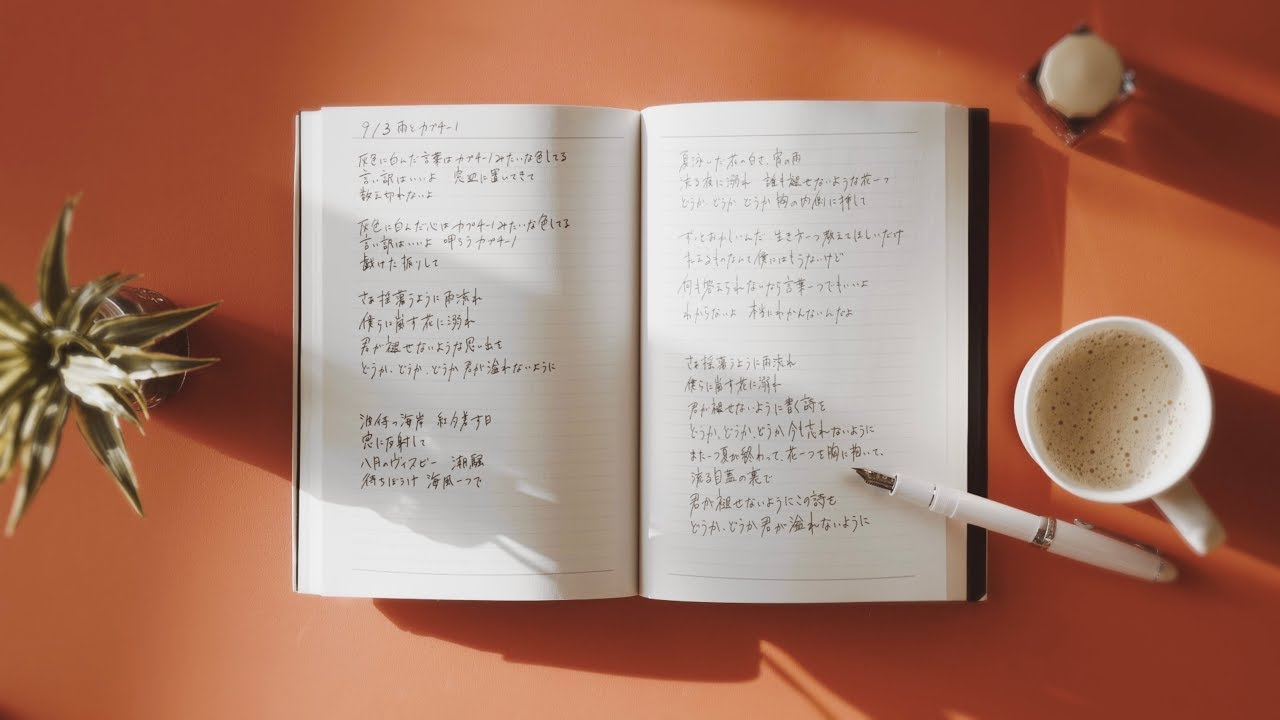 9/3 雨とカプチーノ
灰色に白んだ言葉はカプチーノみたいな色してる
言い訳はいいよ 窓辺に置いてきて
数え切れないよ
灰色に白んだ心はカプチーノみたいな色してる
言い訳はいいよ 呷ろうカプチーノ
戯けた振りして
さぁ揺蕩うように雨流れ
僕らに嵐す花に溺れ
君が褪せないような思い出を
どうか、どうか、どうか君が溢れないように
波待つ海岸 紅夕差す日
窓に反射して
八月のヴィスビー 潮騒
待ちぼうけ 海風一つで
夏泳いだ花の白さ、宵の雨
流る夜に溺れ 誰も褪せないような花一つ
どうか どうか どうか胸の内側に挿して
ずっとおかしいんだ 生き方一つ教えてほしいだけ
払えるものなんて僕にはもうないけど
何も答えられないなら言葉一つでもいいよ
わからないよ 本当にわかんないんだよ
さぁ揺蕩うように雨流れ
僕らに嵐す花に溺れ
君が褪せないように書く詩を
どうか、どうか、どうか今も忘れないように
また一つ夏が終わって、花一つを胸に抱いて、
流る目蓋の裏で
君が褪せないようにこの詩を
どうか、どうか君が溢れないように